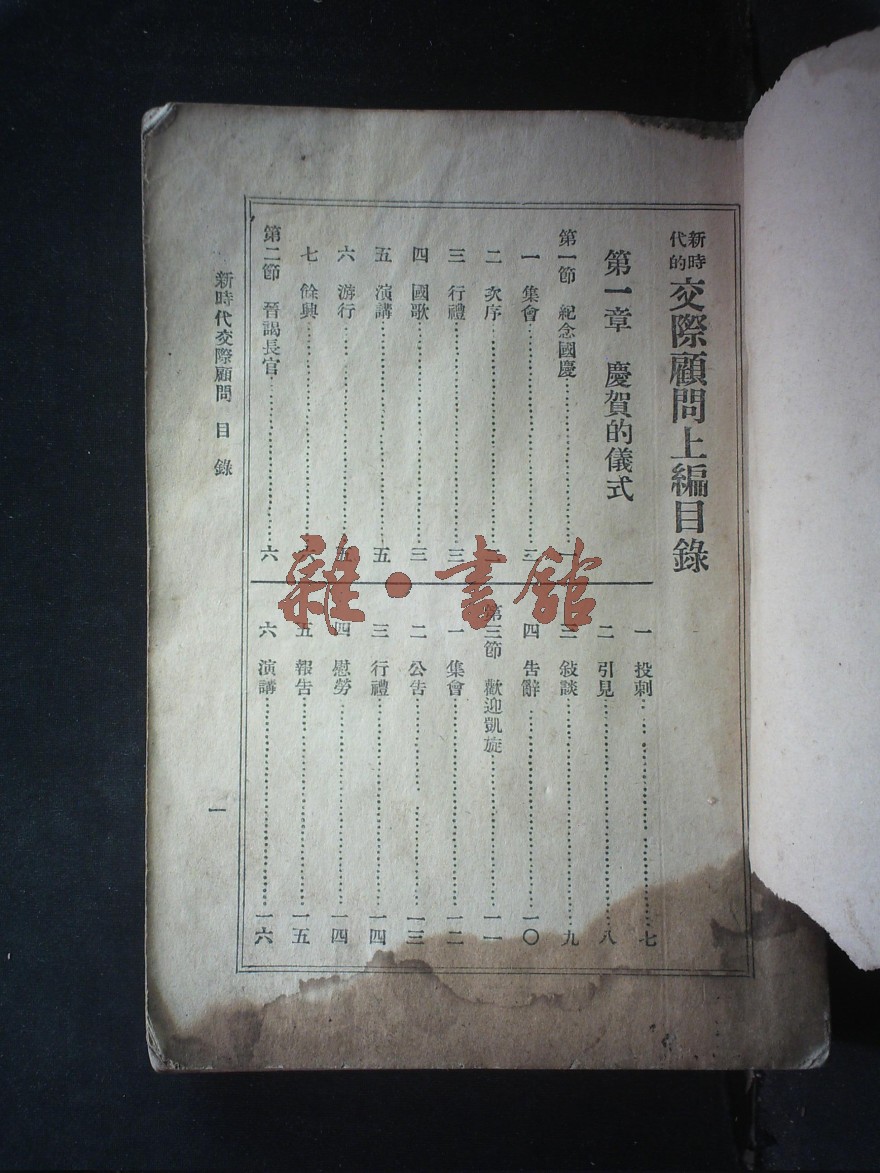 新時代的交際顧問上編目錄
第一章 慶賀的儀式
第一節 紀念國慶……一
一 集會……三
二 次序……三
三 行禮……三
四 國歌……三
五 演講……五
六 游行……五
七 餘興……六
第二節 晉謁長官……六
一 投刺……七
二 引見……八
三 敍談……九
四 告辭……一〇
第三節 歡迎凱旋……一一
一 集會……一二
二 公告……一三
三 行禮……一四
四 慰勞……一四
五 報告……一五
六 演講……一六
新時代交際顧問 目錄
一
雜·書館